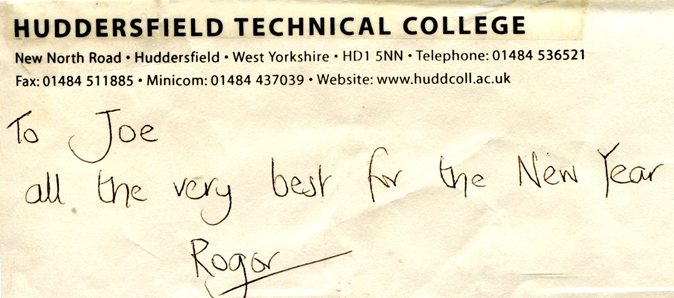 HUDDERSFIELD TECHNICAL COLLEGE
New North Road • Huddersfield • West Yorkshire • HD1 5NN • Telephone: 01484 536521
Fax: 01484 511885 • Minicom: 01484 437039 • Website: www.huddcoll.ac.uk
To Joe
all the very best for the New Year
Roger